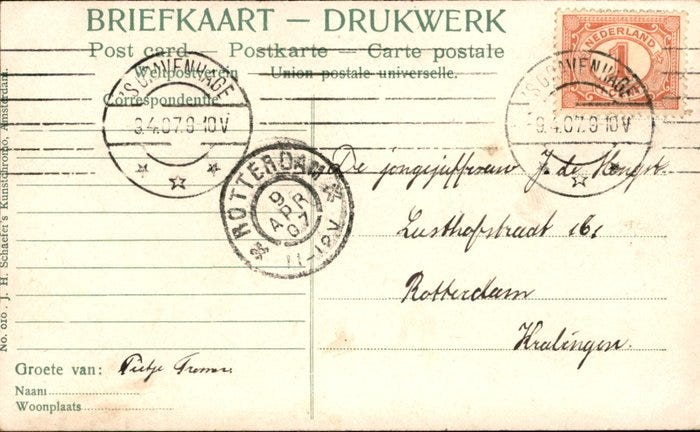 BRIEFKAART — DRUKWERK
Post card — Postkarte — Carte postale
Weltpostverein Union postale universelle.
Correspondentie
'S GRAVENHAGE
9.4.07.9-10V
'S GRAVENHAGE
9.4.07.9-10V
NEDERLAND
1
ROTTERDAM
9
APR
07
11-12V
De jongejuffrouw J. de
Lusthofstraat 161
Rotterdam
Kralingen.
Groete van: Pietje
Naam
Woonplaats
No. 010. J. H. Schaefer's Kunstchromo, Amsterdam.